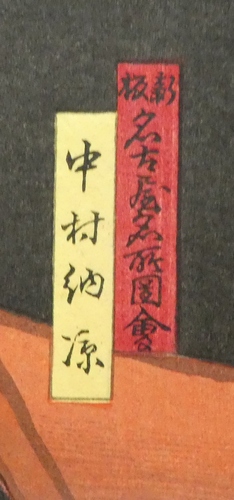 新板
名古屋名所圖會
中村納涼